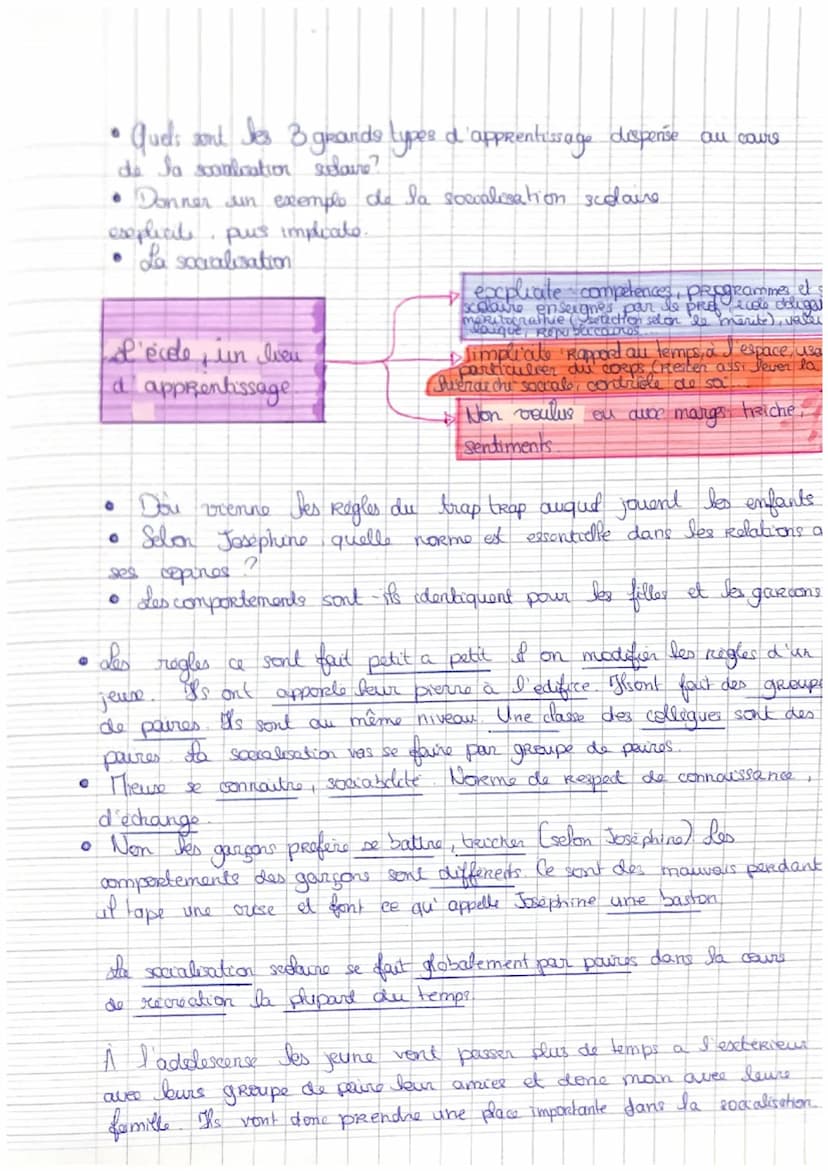 • Quels sont les 3 grands types d'apprentissage dispensé au cours
de la socialisation scolaire?
• Donner un exemple de la socialisation scolaire
explicite, puis implicite.
• La socialisation
L'école, un lieu
d'apprentissage
explicite = compétences, programmes et s
scolaire enseignés par les prof, école obliga
méritocratie (sélection selon le mérite), valeu
laïque, républicaines
implicite Rapport au temps, à l'espace, usa
particulier du corps (rester assi lever la
hiérarchie sociale, contrôle de soi
Non voulus ou aux marges triche,
sentiments
• D'où vienne les règles du trap trap auquel jouent les enfants
• Selon Joséphine, quelle norme est essentielle dans les relations a
ses copines ?
• Les comportements sont-ils identiquent pour les filles et les garçons
• Les règles ce sont fait petit a petit il on modifier les règles d'un
jeux. Ils ont apporté leur pierre à l'édifice. Ils ont fait des groupe
de paires. Ils sont au même niveau. Une classe des collègues sont des
paires. La socialisation vas se faire par groupe de paires.
• Mieux se connaitre, sociabilité. Norme de respect de connaissance,
d'échange.
• Non les garçons préfère se battre, tricher (selon Joséphine). Les
comportements des garçons sont différents. Ce sont des mauvais perdant
il tape une crise et font ce qu'appelle Joséphine une baston
La socialisation scolaire se fait globalement par paires dans la cours
de récréation la plupart du temps.
À l'adolescense les jeune vont passer plus de temps a l'extérieur
avec leurs groupe de paire leur amies et donc moin avec leurs
famille. Ils vont donc prendre une place importante dans la socialisation